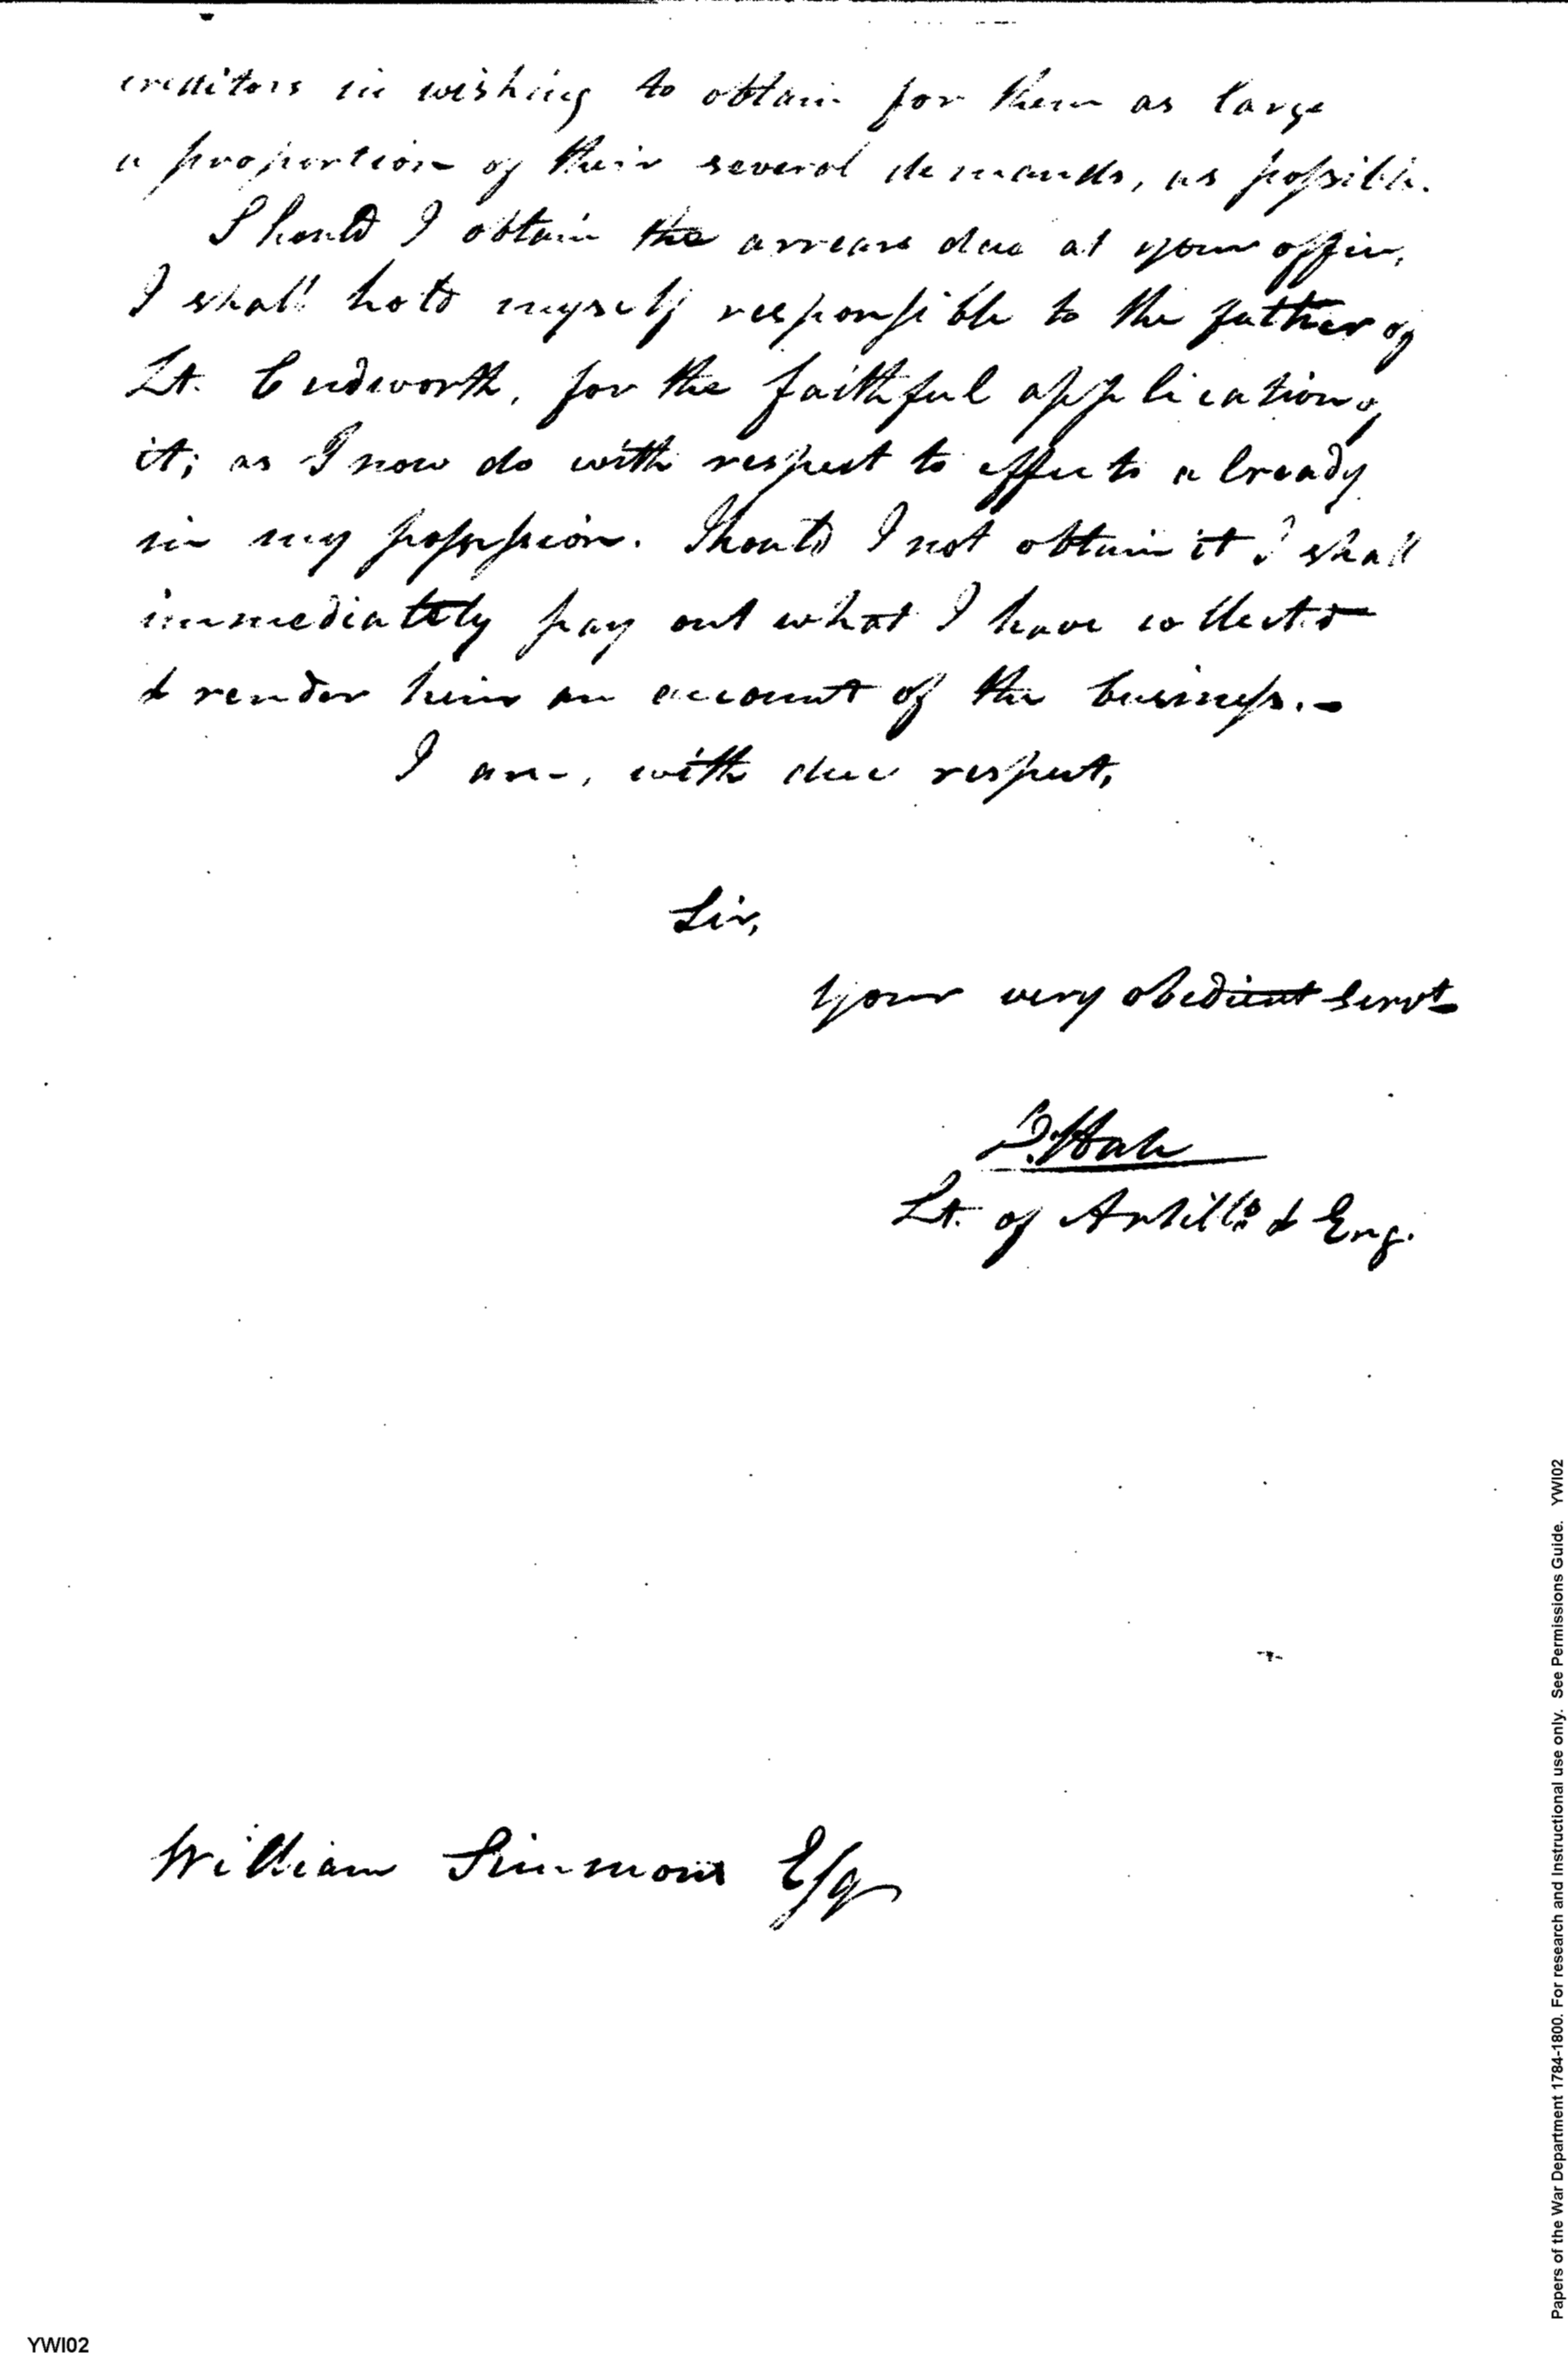 creditors in wishing to obtain for them as large
a proportion of their several demands, as possible.
Should I obtain the arrears due at your office,
I shall hold myself responsible to the father of
Lt. Cudworth, for the faithful application of
it; as I now do with respect to effects already
in my possession. Should I not obtain it I shall
immediately pay out what I have collected
& render him an account of the business.-
I am, with due respect,
Sir,
Your very obedient Servt
D. Hale
Lt. of Artill. & Eng.
William Simmons Esq
Papers of the War Department 1784-1800. For research and Instructional use only. See Permissions Guide. YWI02
YWI02